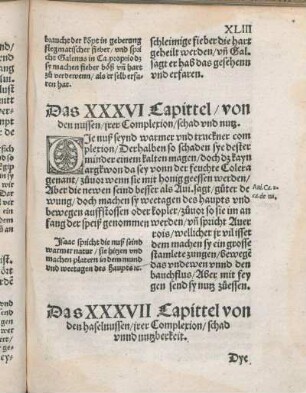 XLIII
brauche der Köpt in geberung
flegmatischer fieber/ und spri
che Galenus in Ca. proprio dz
sy machen fieber böß vñ hart
zů verdewenn/ als er selb erfa
ren hat.
schleimige fieber die hart
geheilt werden/ vñ Gal.
sagt er has das gesehenn
vnd erfaren.
Das XXXVI Capittel/ von
den nussen/ jrer Complexion/ schad vnd nutz.
Die nuß seynd warmer vnd truckner com
plexion/ Derhalben so schaden sye dester
minder einem kalten magen/ doch dz kayn
argkwon da sey vonn der feuchte Colera
genant/ zůuor wenn sie mit honig gessen werden/
Aber die newen seind besser als Aui. sagt, gůter de
wung/ doch machen sy weetagen des haupts vnd
bewegen ausstossen oder kopler/ zůuor so sie im an
fang der speiß genommen werden/ vñ spricht Auer
rois/ wellicher jr vil isset
dem machen sy ein grosse
stamlete zungen/ bewege
das vndewen vnnd den
bauchflus/ Aber mit fey
gen send sy nutz zůessen.
Isaac spricht die nuß seind
warmer natur/ sie hitzen vnd
machen platern in dem mund
vnd weetagen des haupts ꝛc.
Aui. Ca. 2.
ca. de nu.
Das XXXVII Capittel von
den haselnussen/ jrer Complexion/ schad
vnnd nutzberkeit.
Dye